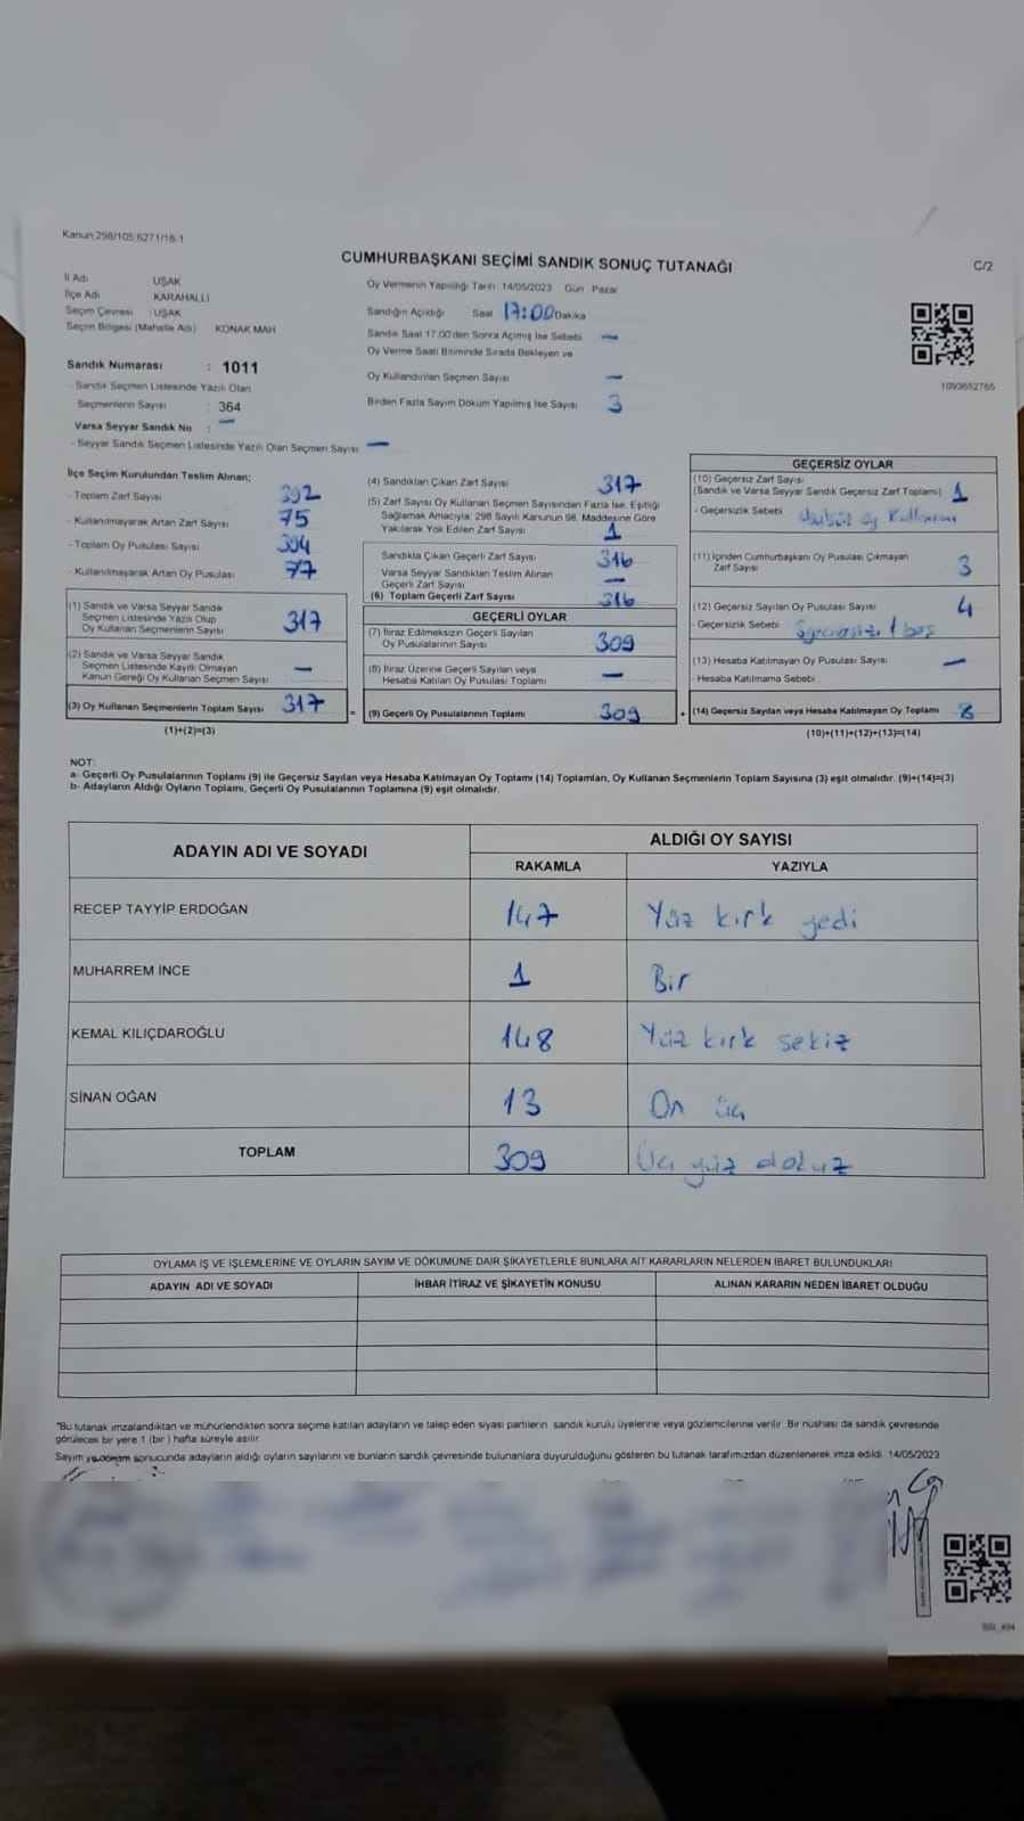 Kanun:298/105;6271/16-1
CUMHURBAŞKANI SEÇİMİ SANDIK SONUÇ TUTANAĞI
C/2
İl Adı UŞAK
İlçe Adı KARAHALLI
Seçim Çevresi : UŞAK
Seçim Bölgesi (Mahalle Adı) KONAK MAH
Sandık Numarası : 1011
- Sandık Seçmen Listesinde Yazılı Olan
Seçmenlerin Sayısı : 364
Varsa Seyyar Sandık No : —
- Seyyar Sandık Seçmen Listesinde Yazılı Olan Seçmen Sayısı —
Oy Vermenin Yapıldığı Tarih: 14/05/2023 Gün: Pazar
Sandığın Açıldığı Saat 17:00 Dakika
Sandık Saat 17.00'den Sonra Açılmış İse Sebebi —
Oy Verme Saati Bitiminde Sırada Bekleyen ve
Oy Kullandırılan Seçmen Sayısı —
Birden Fazla Sayım Döküm Yapılmış İse Sayısı 3
1093652765
İlçe Seçim Kurulundan Teslim Alınan;
- Toplam Zarf Sayısı 392
- Kullanılmayarak Artan Zarf Sayısı 75
- Toplam Oy Pusulası Sayısı 394
- Kullanılmayarak Artan Oy Pusulası 77
(1) Sandık ve Varsa Seyyar Sandık
Seçmen Listesinde Yazılı Olup
Oy Kullanan Seçmenlerin Sayısı 317
(2) Sandık ve Varsa Seyyar Sandık
Seçmen Listesinde Kayıtlı Olmayan
Kanun Gereği Oy Kullanan Seçmen Sayısı —
(3) Oy Kullanan Seçmenlerin Toplam Sayısı 317
(1)+(2)=(3)
(4) Sandıktan Çıkan Zarf Sayısı 317
(5) Zarf Sayısı Oy Kullanan Seçmen Sayısından Fazla İse, Eşitliği
Sağlamak Amacıyla; 298 Sayılı Kanunun 98. Maddesine Göre
Yakılarak Yok Edilen Zarf Sayısı 1
Sandıkta Çıkan Geçerli Zarf Sayısı 316
Varsa Seyyar Sandıktan Teslim Alınan
Geçerli Zarf Sayısı —
(6) Toplam Geçerli Zarf Sayısı 316
GEÇERLİ OYLAR
(7) İtiraz Edilmeksizin Geçerli Sayılan
Oy Pusulalarının Sayısı 309
(8) İtiraz Üzerine Geçerli Sayılan veya
Hesaba Katılan Oy Pusulası Toplamı —
= (9) Geçerli Oy Pusulalarının Toplamı 309
GEÇERSİZ OYLAR
(10) Geçersiz Zarf Sayısı
(Sandık ve Varsa Seyyar Sandık Geçersiz Zarf Toplamı) 1
- Geçersizlik Sebebi oy Kullanımı
(11) İçinden Cumhurbaşkanı Oy Pusulası Çıkmayan
Zarf Sayısı 3
(12) Geçersiz Sayılan Oy Pusulası Sayısı 4
- Geçersizlik Sebebi 1 boş
(13) Hesaba Katılmayan Oy Pusulası Sayısı —
- Hesaba Katılmama Sebebi
+ (14) Geçersiz Sayılan veya Hesaba Katılmayan Oy Toplamı 8
(10)+(11)+(12)+(13)=(14)
NOT:
a- Geçerli Oy Pusulalarının Toplamı (9) ile Geçersiz Sayılan veya Hesaba Katılmayan Oy Toplamı (14) Toplamları, Oy Kullanan Seçmenlerin Toplam Sayısına (3) eşit olmalıdır. (9)+(14)=(3)
b- Adayların Aldığı Oyların Toplamı, Geçerli Oy Pusulalarının Toplamına (9) eşit olmalıdır.
ADAYIN ADI VE SOYADI
ALDIĞI OY SAYISI
RAKAMLA YAZIYLA
RECEP TAYYİP ERDOĞAN 147 Yüz kırk yedi
MUHARREM İNCE 1 Bir
KEMAL KILIÇDAROĞLU 148 Yüz kırk sekiz
SİNAN OĞAN 13 On üç
TOPLAM 309 Üç yüz dokuz
OYLAMA İŞ VE İŞLEMLERİNE VE OYLARIN SAYIM VE DÖKÜMÜNE DAİR ŞİKAYETLERLE BUNLARA AİT KARARLARIN NELERDEN İBARET BULUNDUKLARI
ADAYIN ADI VE SOYADI İHBAR İTİRAZ VE ŞİKAYETİN KONUSU ALINAN KARARIN NEDEN İBARET OLDUĞU
*Bu tutanak imzalandıktan ve mühürlendikten sonra seçime katılan adayların ve talep eden siyasi partilerin sandık kurulu üyelerine veya gözlemcilerine verilir. Bir nüshası da sandık çevresinde
görülecek bir yere 1 (bir) hafta süreyle asılır.
Sayım ve döküm sonucunda adayların aldığı oyların sayılarını ve bunların sandık çevresinde bulunanlara duyurulduğunu gösteren bu tutanak tarafımızdan düzenlenerek imza edildi. 14/05/2023